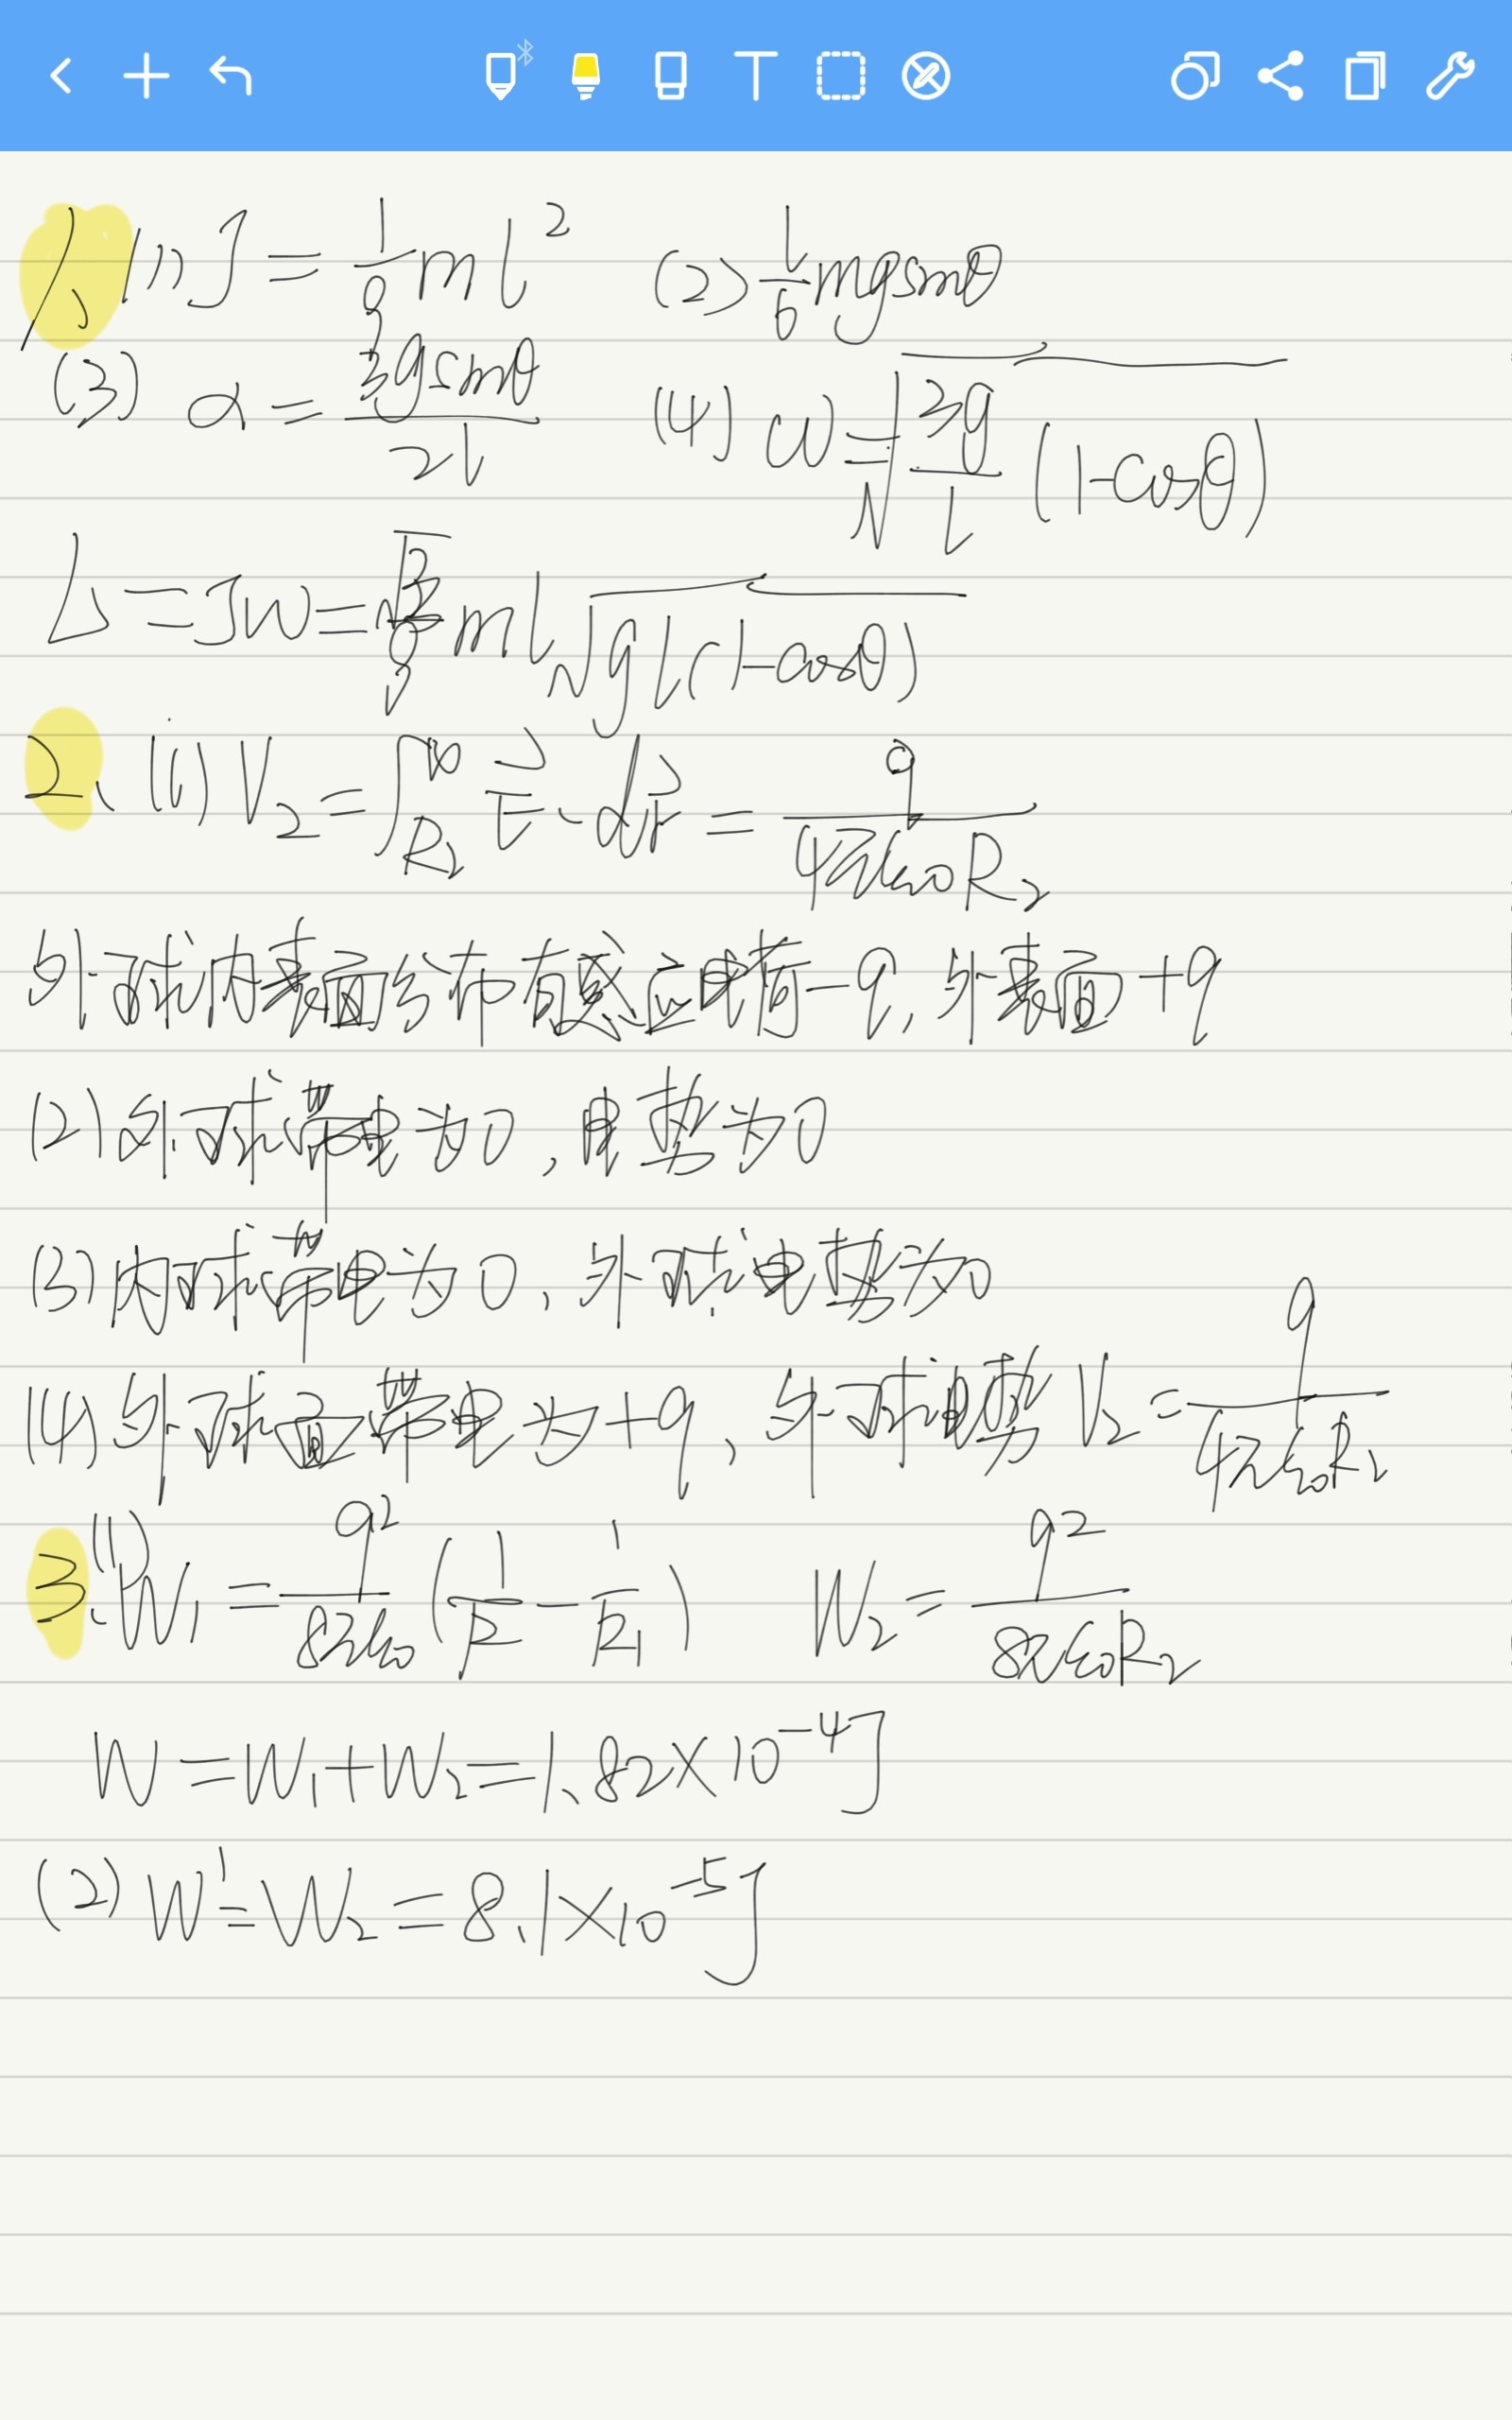 1、(1) J = 1/9 ml² (2) l/6 mgsinθ
(3) α = 3gsinθ/2l (4) ω = √(3g/l (1-cosθ))
L = Jω = √3/9 ml√(gl(1-cosθ))
2、(1) V₂ = ∫_{R₂}^{∞} E⃗·dr⃗ = q/4πε₀R₂
外球内表面分布有感应电荷-q,外表面+q
(2)外球带电为0,电势为0
(3)内球带电为0,外球电势为0
(4)外球面带电为+q,外球电势V₂ = q/4πε₀R₂
3、(1) W₁ = q²/8πε₀ (1/R - 1/R₁) W₂ = q²/8πε₀R₂
W = W₁+W₂ = 1.82×10⁻⁴J
(2) W' = W₂ = 8.1×10⁻⁵J